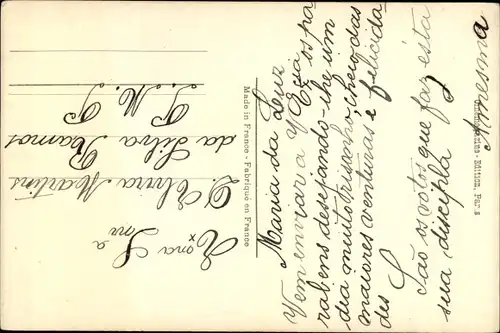 Maria da Luz
Vem enviar a V. Excia os pa
rabens desejando-lhe um
dia muito risonho, cheio das
maiores venturas e felicida
des
São os votos que faz esta
sua discipla
mesma
Made in France - Fabriqué en France
Edition, Paris
Snra
D. Elvira Martins
da Silva Ramos